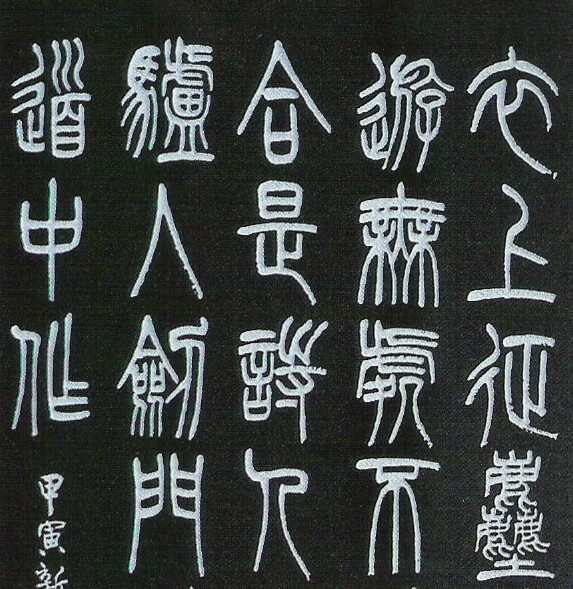 衣上征塵
遊無處不
合是詩人
驢入劍門
道中作
甲寅新